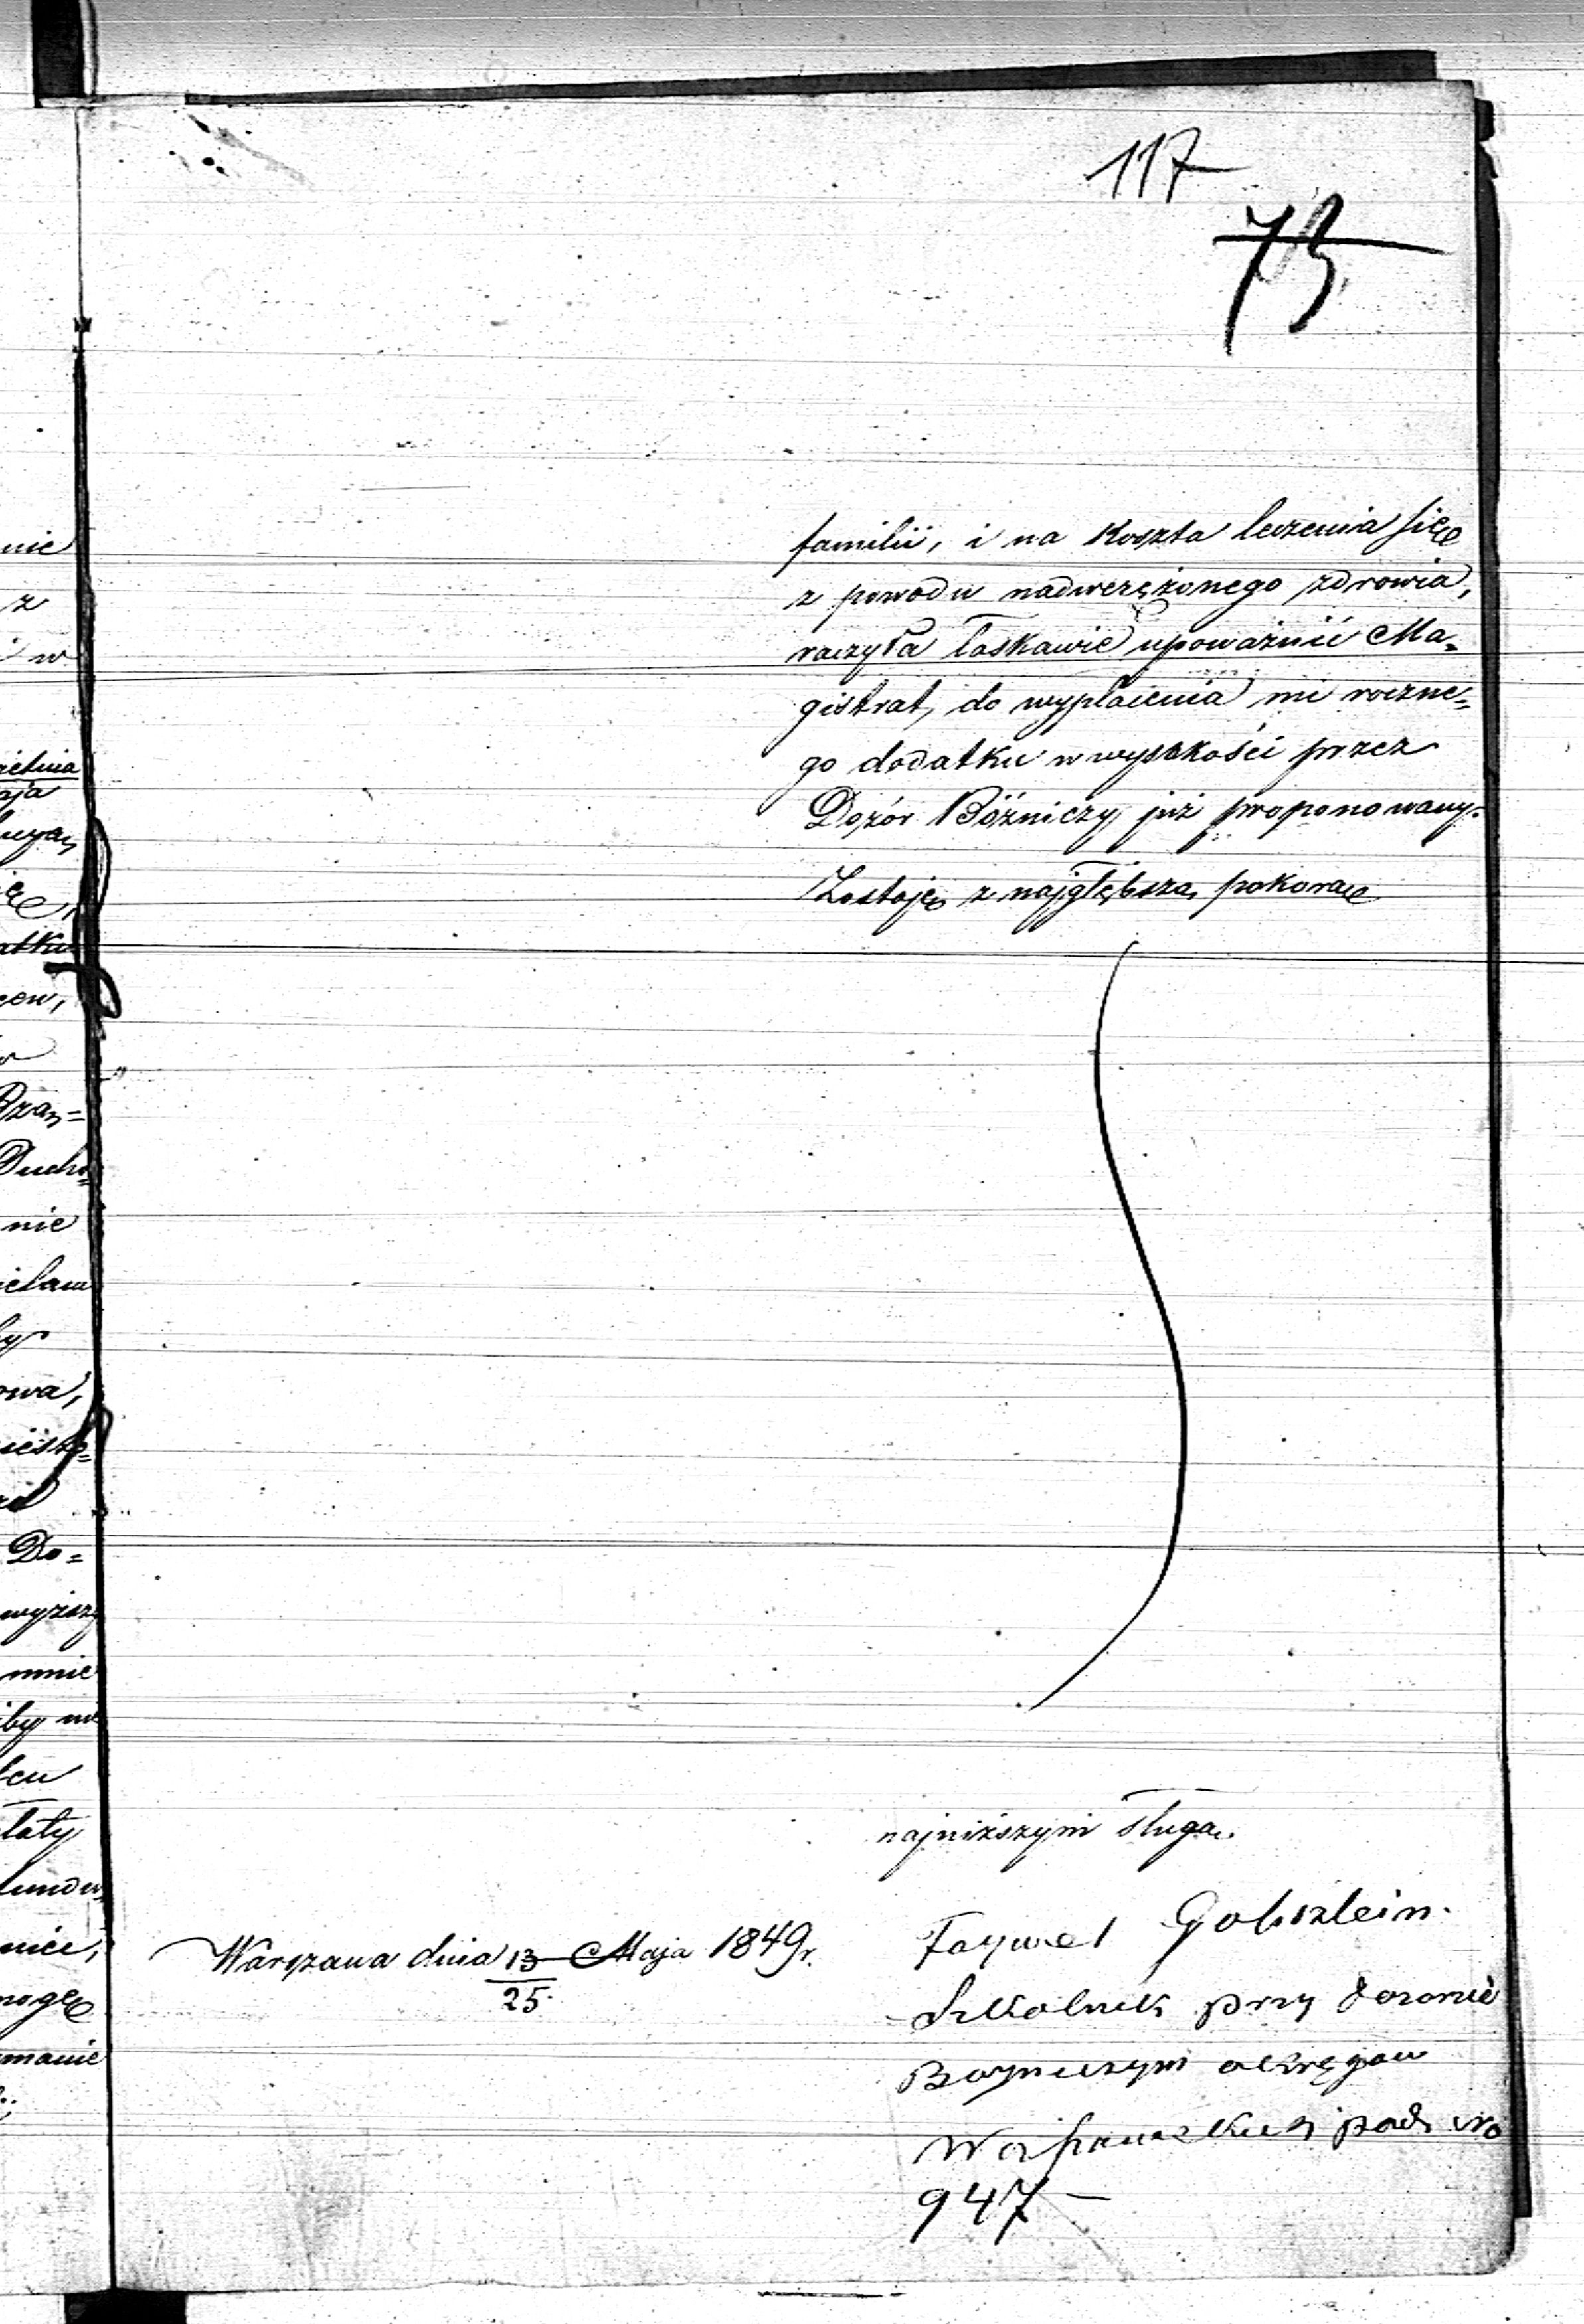 117
73
familii, i na koszta leczenia się
z powodu nadwerężonego zdrowia,
raczyła łaskawie upoważnić Ma=
gistrat, do wypłacenia mi roczne=
go dodatku w wysokości przez
Dozór Bóżniczy już proponowany.
Zostaję z najgłębszą pokorą
najniższym sługą.
Warszawa dnia 13/25 Maja 1849 r.
Gobszlein.
Szkolnik przy dozorze
Bożniczym okręgow
pod No
947 –
nie
z
i w
Ducho=
nie
Do=
mnie